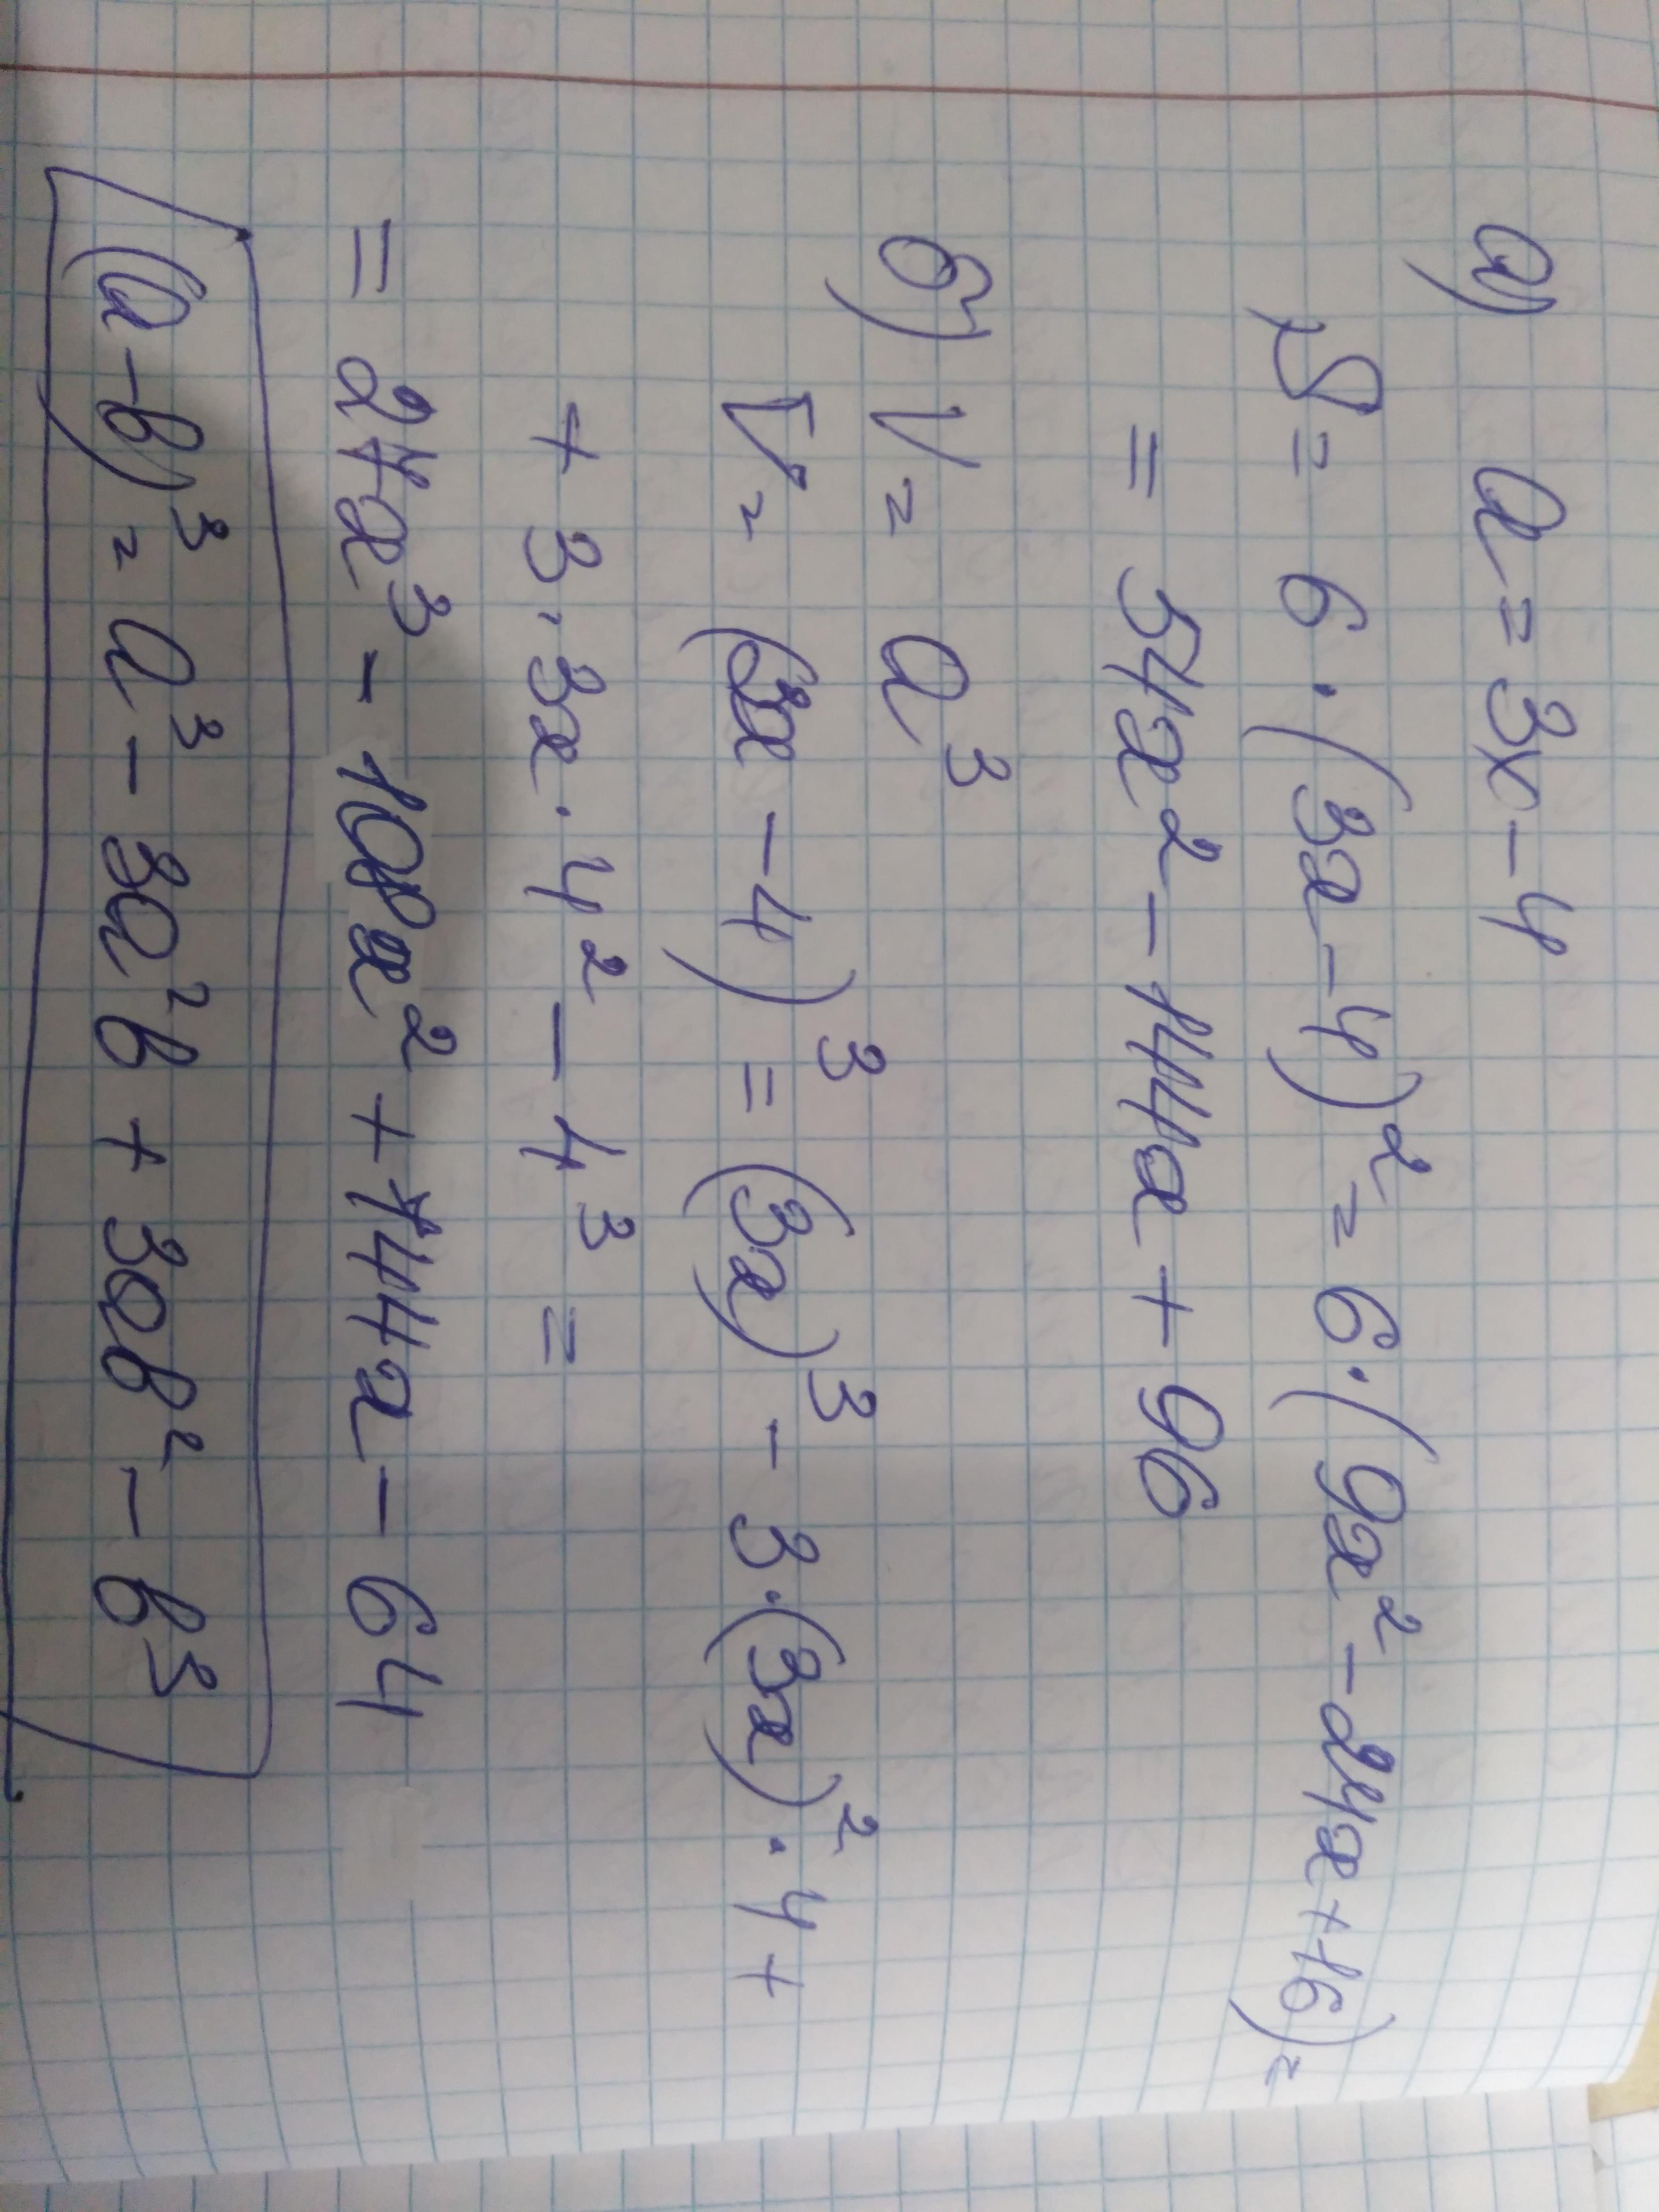 а) a = 3x - 4
S = 6 · (3x - 4)² = 6 · (9x² - 24x + 16) =
= 54x² - 144x + 96
б) V = a³
V = (3x - 4)³ = (3x)³ - 3 · (3x)² · 4 +
+ 3 · 3x · 4² - 4³ =
= 27x³ - 108x² + 144x - 64
(a - b)³ = a³ - 3a²b + 3ab² - b³